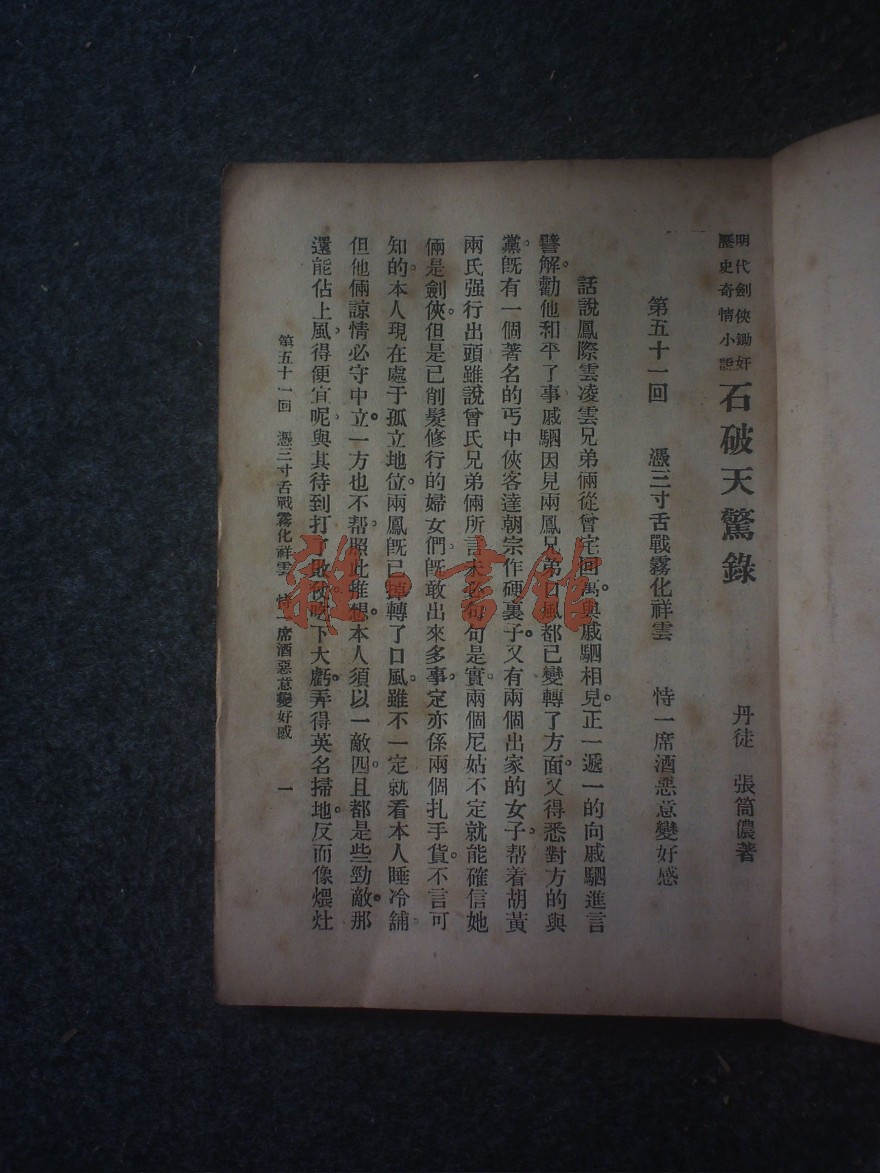 明代劍俠鋤奸
歷史奇情小說
石破天驚錄
丹徒 張箇儂著
第五十一回 憑三寸舌戰霧化祥雲 恃一席酒惡意變好感
話說鳳際雲凌雲兄弟倆從曾宅回萬與戚駟相見。正一遞一的向戚駟進言
譬解。勸他和平了事戚駟因見兩鳳兄弟口風都已變轉了方面。又得悉對方的與
黨。既有一個著名的丐中俠客達朝宗作硬裏子。又有兩個出家的女子。帮着胡黃
兩氏强行出頭雖說曾氏兄弟倆所言未必句句是實。兩個尼姑不定就能確信她
倆是劍俠。但是已削髮修行的婦女們。旣敢出來多事。定亦係兩個扎手貨。不言可
知的。本人現在處于孤立地位。兩鳳旣已掉轉了口風。雖不一定就看本人睡冷舖
但他倆諒情必守中立。一方也不帮。照此推想。本人須以一敵四。且都是些勁敵。那
還能佔上風。得便宜呢。與其待到打敗仗吃下大虧。弄得英名掃地。反而像煨灶
第五十一回 憑三寸舌戰霧化祥雲 恃一席酒惡意變好感 一
雜·書館